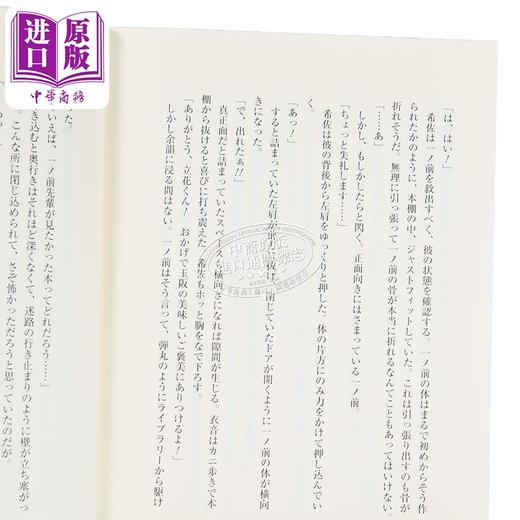 进口原版
中华商务
「は、はい！」
希佐は一ノ前を救出すべく、彼の状態を確認する。一ノ前の体はまるで初めからそう作
られたかのように、本棚の中、ジャストフィットしていた。これは引っ張り出すのも骨が
折れそうだ。無理に引っ張って一ノ前の骨が本当に折れるなんてこともあってはいけない。
「……あ」
しかし、もしかしたらと閃く。正面向きにはさまっている一ノ前。
「ちょっと失礼します……」
希佐は彼の背後から左肩をゆっくりと押した。体の片方にのみ力をかけて押し込んでい
く。
「あっ！」
すると詰まっていた左肩が抜け、閉じていたドアが開くように一ノ前の体が横向
きになった。
「で、出れたぁ!!」
真正面だと詰まっていたスペースも横向きになれば隙間が生じる。衣音はカニ歩きで本
棚から抜けると喜びに打ち震えた。希佐もホッと胸をなで下ろす。
「ありがとう、立花くん！ おかげで玉阪の美味しいご褒美にありつけるよ！」
しかし余韻に浸る間はない。一ノ前はそう言って、弾丸のようにライブラリーから駆け
った。
いえば、一ノ前先輩が見たかった本ってどれだろう……」
き込むと奥行きはそれほど深くなくて、迷路の行き止まりのように壁が立ち塞がっ
。こんな所に閉じ込められて、さぞ怖かっただろうと思っていたのだが。